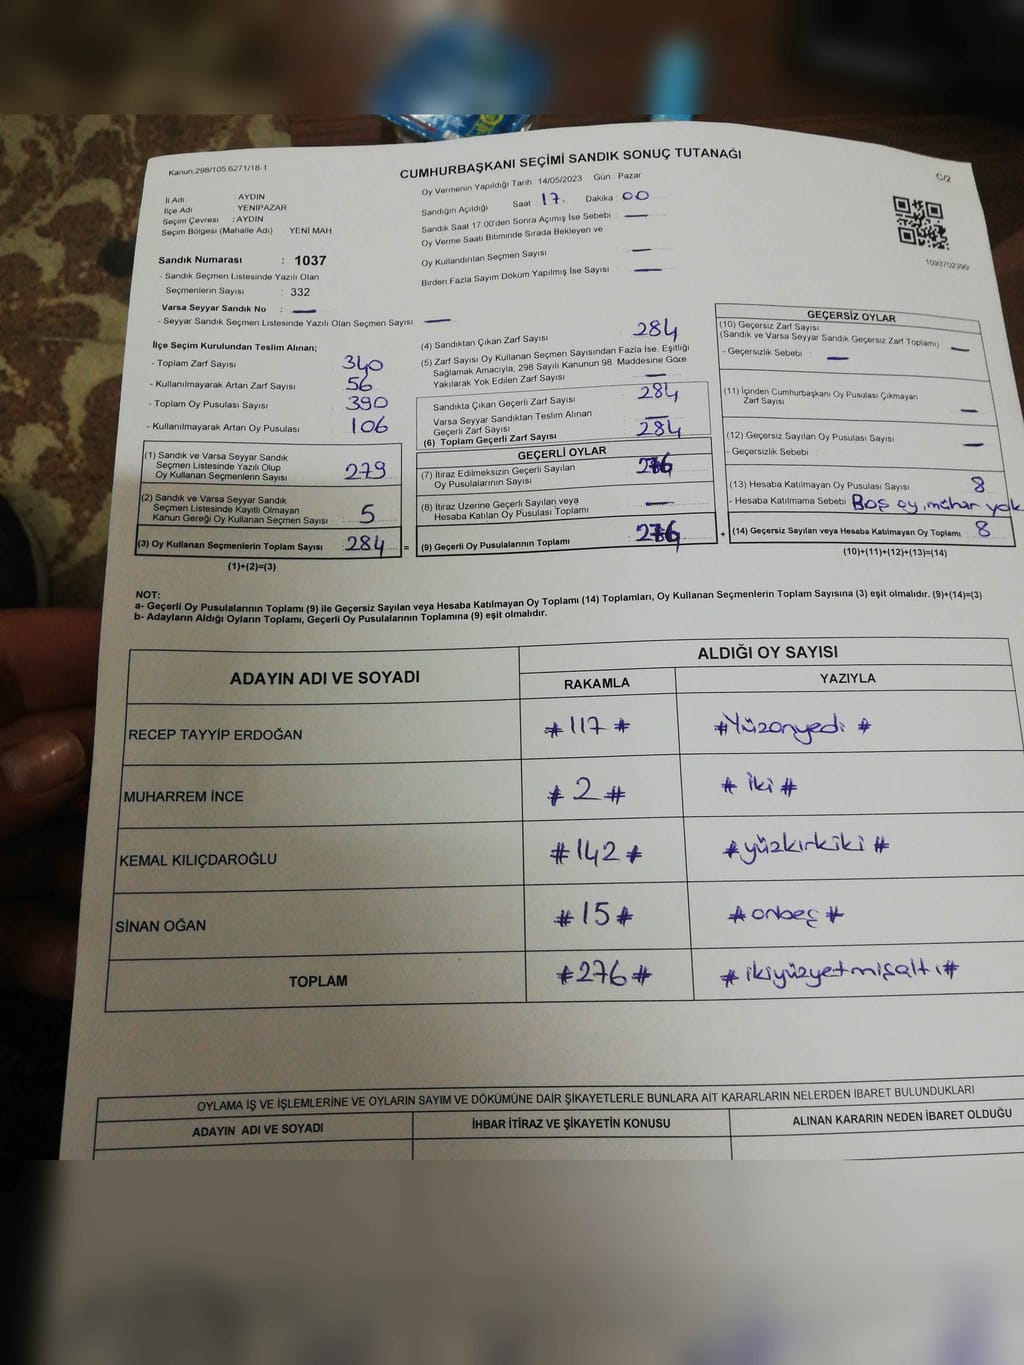 Kanun,298/105;6271/18-1
CUMHURBAŞKANI SEÇİMİ SANDIK SONUÇ TUTANAĞI
C/2
Oy Vermenin Yapıldığı Tarih : 14/05/2023 Gün : Pazar
İl Adı : AYDIN
İlçe Adı : YENİPAZAR
Seçim Çevresi : AYDIN
Seçim Bölgesi (Mahalle Adı) : YENİ MAH.
Sandığın Açıldığı Saat 17. Dakika 00
Sandık Saat 17.00'den Sonra Açımış İse Sebebi : —
Oy Verme Saati Bitiminde Sırada Bekleyen ve
Oy Kullandırılan Seçmen Sayısı : —
Birden Fazla Sayım Döküm Yapılmış İse Sayısı : —
1093702399
Sandık Numarası : 1037
- Sandık Seçmen Listesinde Yazılı Olan
Seçmenlerin Sayısı : 332
Varsa Seyyar Sandık No : —
- Seyyar Sandık Seçmen Listesinde Yazılı Olan Seçmen Sayısı : —
İlçe Seçim Kurulundan Teslim Alınan;
- Toplam Zarf Sayısı : 340
- Kullanılmayarak Artan Zarf Sayısı : 56
- Toplam Oy Pusulası Sayısı : 390
- Kullanılmayarak Artan Oy Pusulası : 106
(1) Sandık ve Varsa Seyyar Sandık
Seçmen Listesinde Yazılı Olup
Oy Kullanan Seçmenlerin Sayısı : 279
(2) Sandık ve Varsa Seyyar Sandık
Seçmen Listesinde Kayıtlı Olmayan
Kanun Gereği Oy Kullanan Seçmen Sayısı : 5
(3) Oy Kullanan Seçmenlerin Toplam Sayısı : 284 =
(1)+(2)=(3)
(4) Sandıktan Çıkan Zarf Sayısı : 284
(5) Zarf Sayısı Oy Kullanan Seçmen Sayısından Fazla İse, Eşitliği
Sağlamak Amacıyla, 298 Sayılı Kanunun 98. Maddesine Göre
Yakılarak Yok Edilen Zarf Sayısı : —
Sandıkta Çıkan Geçerli Zarf Sayısı : 284
Varsa Seyyar Sandıktan Teslim Alınan
Geçerli Zarf Sayısı : —
(6) Toplam Geçerli Zarf Sayısı : 284
GEÇERLİ OYLAR
(7) İtiraz Edilmeksizin Geçerli Sayılan
Oy Pusulalarının Sayısı : 276
(8) İtiraz Üzerine Geçerli Sayılan veya
Hesaba Katılan Oy Pusulası Toplamı : —
(9) Geçerli Oy Pusulalarının Toplamı : 276 +
GEÇERSİZ OYLAR
(10) Geçersiz Zarf Sayısı
(Sandık ve Varsa Seyyar Sandık Geçersiz Zarf Toplamı) : —
- Geçersizlik Sebebi : —
(11) İçinden Cumhurbaşkanı Oy Pusulası Çıkmayan
Zarf Sayısı : —
(12) Geçersiz Sayılan Oy Pusulası Sayısı : —
- Geçersizlik Sebebi :
(13) Hesaba Katılmayan Oy Pusulası Sayısı : 8
- Hesaba Katılmama Sebebi : Boş oy, mühür yok
(14) Geçersiz Sayılan veya Hesaba Katılmayan Oy Toplamı : 8
(10)+(11)+(12)+(13)=(14)
NOT:
a- Geçerli Oy Pusulalarının Toplamı (9) ile Geçersiz Sayılan veya Hesaba Katılmayan Oy Toplamı (14) Toplamları, Oy Kullanan Seçmenlerin Toplam Sayısına (3) eşit olmalıdır. (9)+(14)=(3)
b- Adayların Aldığı Oyların Toplamı, Geçerli Oy Pusulalarının Toplamına (9) eşit olmalıdır.
ADAYIN ADI VE SOYADI ALDIĞI OY SAYISI
RAKAMLA YAZIYLA
RECEP TAYYİP ERDOĞAN #117# #Yüzonyedi#
MUHARREM İNCE #2# #iki#
KEMAL KILIÇDAROĞLU #142# #yüzkırkiki#
SİNAN OĞAN #15# #onbeş#
TOPLAM #276# #ikiyüzyetmişaltı#
OYLAMA İŞ VE İŞLEMLERİNE VE OYLARIN SAYIM VE DÖKÜMÜNE DAİR ŞİKAYETLERLE BUNLARA AİT KARARLARIN NELERDEN İBARET BULUNDUKLARI
ADAYIN ADI VE SOYADI İHBAR İTİRAZ VE ŞİKAYETİN KONUSU ALINAN KARARIN NEDEN İBARET OLDUĞU